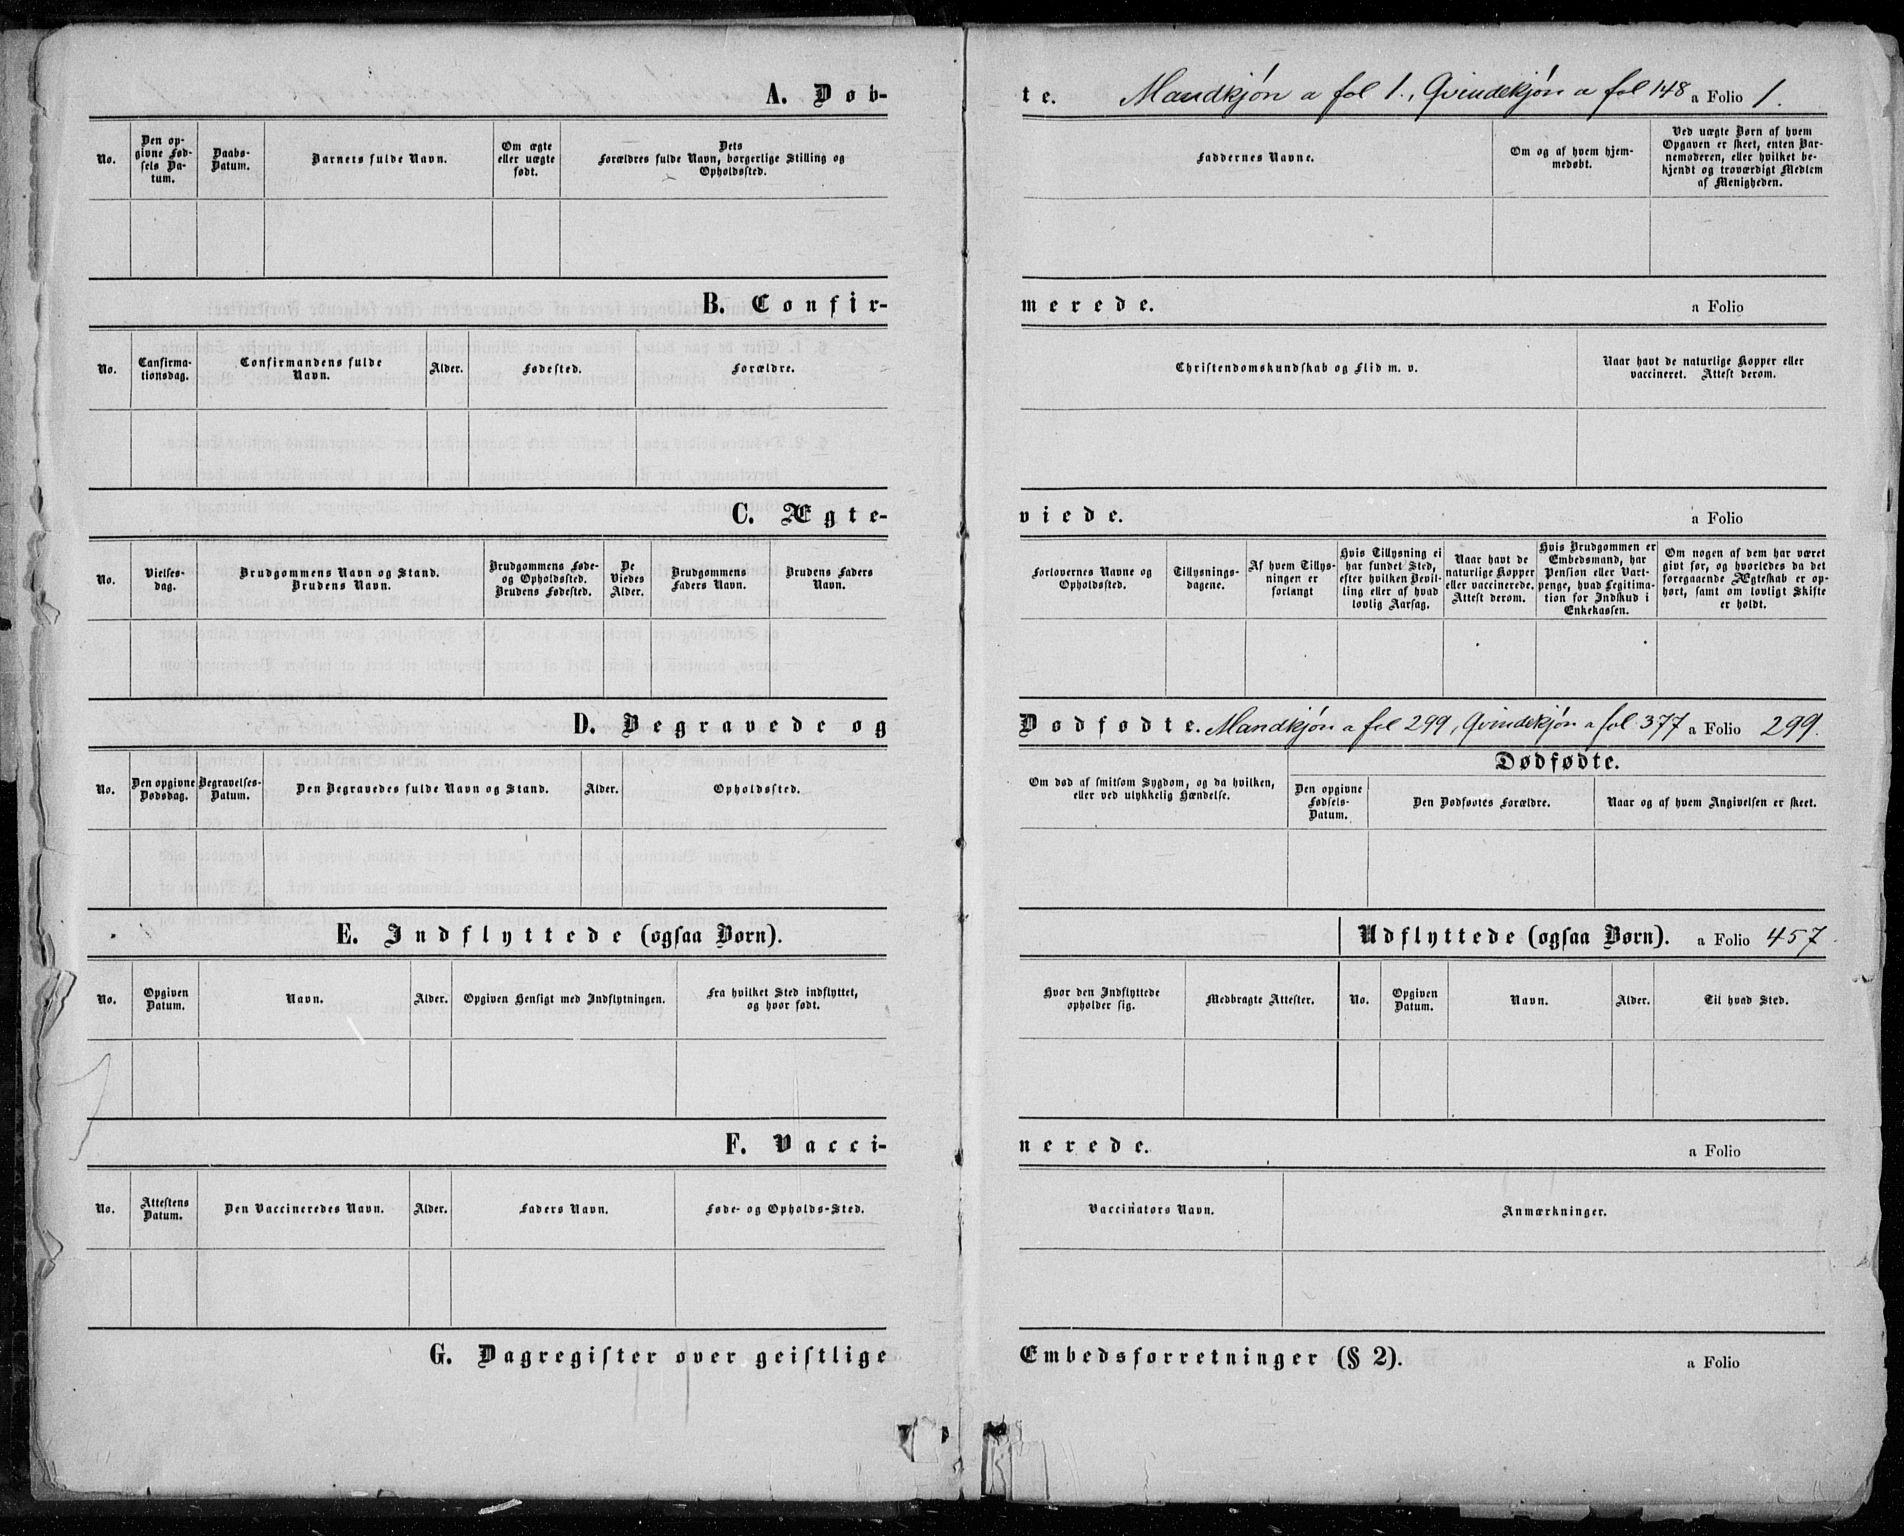 A. Døbte. Mandkjøn a fol 1., Qvindekjøn a fol 148 a Folio 1.
No.
Den op-
givne Fød-
sels Da-
tum.
Daabs-
Datum.
Barnets fulde Navn.
Om ægte
eller uægte
født.
Dets
Forældres fulde Navn, borgerlige Stilling og
Opholdssted.
Faddernes Navne.
Om og af hvem hjem-
medøbt.
Ved uægte Børn af hvem
Opgaven er skeet, enten Bar-
nemoderen, eller hvilket be-
kjendt og troværdigt Medlem
af Menigheden.
B. Confir-merede. a Folio
No.
Confirma-
tionsdag.
Confirmandens fulde
Navn.
Alder.
Fødested.
Forældre.
Christendomskundskab og Flid m. v.
Naar havt de naturlige Kopper eller
vaccineret. Attest derom.
C. Ægte-viede. a Folio
No.
Vielses-
dag.
Brudgommens Navn og Stand.
Brudens Navn.
Brudgommens Føde-
og Opholdssted.
Brudens Fødested.
De
Viedes
Alder.
Brudgommens
Faders Navn.
Brudens Faders
Navn.
Forlovernes Navne og
Opholdssted.
Tillysnings-
dagene.
Af hvem Tillys-
ningen er
forlangt
Hvis Tillysning ei
har fundet Sted,
efter hvilken Bevil-
ling eller af hvad
lovlig Aarsag.
Naar havt de
naturlige Kopper
eller vaccinerede.
Attest derom.
Hvis Brudgommen er
Embedsmand, har
Pension eller Vart-
penge, hvad Legitima-
tion for Indskud i
Enkekassen.
Om nogen af dem har været
givt før, og hvorledes da det
foregaaende Ægteskab er op-
hørt, samt om lovligt Skifte
er holdt.
D. Begravede og Dødfødte. Mandkjøn a fol 299, Qvindekjøn a fol. 377 a Folio 299.
No.
Den opgivne
Dødsdag.
Begravelses-
Datum.
Den Begravedes fulde Navn og Stand.
Alder.
Opholdssted.
Om død af smitsom Sygdom, og da hvilken,
eller ved ulykkelig Hændelse.
Dødfødte.
Den opgivne
Fødsels-
Datum.
Den Dødfødtes Forældre.
Naar og af hvem Angivelsen er skeet.
E. Indflyttede (ogsaa Børn). Udflyttede (ogsaa Børn). a Folio 457.
No.
Opgiven
Datum.
Navn.
Alder.
Opgiven Hensigt med Indflytningen.
Fra hvilket Sted indflyttet,
og hvor født.
Hvor den Indflyttede
opholder sig.
Medbragte Attester.
No.
Opgiven
Datum.
Navn.
Alder.
Til hvad Sted.
F. Vacci-nerede. a Folio
No.
Attestens
Datum.
Den Vaccineredes Navn.
Alder.
Faders Navn.
Føde- og Opholds-Sted.
Vaccinators Navn.
Anmærkninger.
G. Dagregister over geistlige Embedsforretninger (§ 2). a Folio